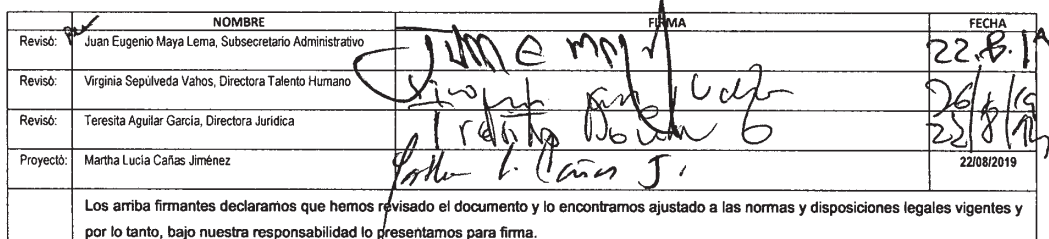 NOMBRE FIRMA FECHA
Revisó: Juan Eugenio Maya Lema, Subsecretario Administrativo 22.8.19
Revisó: Virginia Sepúlveda Vahos, Directora Talento Humano 26/8/19
Revisó: Teresita Aguilar García, Directora Jurídica 22/8/19
Proyectó: Martha Lucía Cañas Jiménez Martha L. Cañas J. 22/08/2019
Los arriba firmantes declaramos que hemos revisado el documento y lo encontramos ajustado a las normas y disposiciones legales vigentes y
por lo tanto, bajo nuestra responsabilidad lo presentamos para firma.